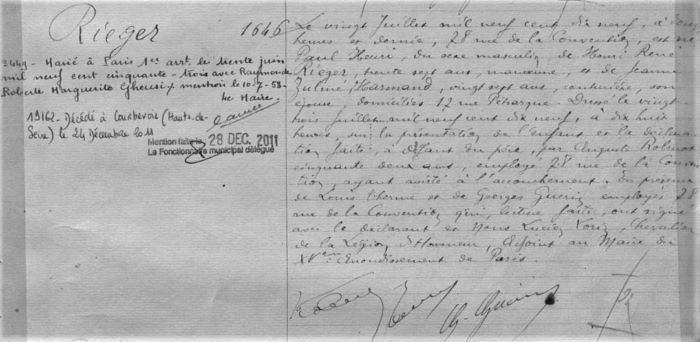 Rieger
1646
2449 - Marié à Paris 1er arrt. le trente juin
mil neuf cent cinquante-trois avec Raymonde
Roberte Marguerite Gheusi / mention le 10-7-53-
Le Maire.
19162. Décédé à Courbevoie (Hauts-de-
Seine) le 24 Décembre 2011
Mention faite le 28 DEC. 2011
Le Fonctionnaire municipal délégué
Le vingt juillet mil neuf cent dix neuf, à
heures et demie, 28 rue de la Convention, est né
Paul Henri, du sexe masculin, de Henri René
Rieger, trente sept ans, manœuvre, et de Jeanne
Zulime Harmand, vingt sept ans, couturière, son
épouse, domiciliés 12 rue Pétrarque. Dressé le vingt
trois juillet mil neuf cent dix neuf, à dix huit
heures, sur la présentation de l'enfant et la déclara-
tion faite, à défaut du père, par Auguste
cinquante deux ans, employé 28 rue de la Conven-
tion, ayant assisté à l'accouchement. En présence
de Louis Therme et de Georges Guérin employés 28
rue de la Convention qui, lecture faite, ont signé
avec le déclarant et Nous Lucien Chevalier
de la Légion d'Honneur, Adjoint au Maire du
XVème Arrondissement de Paris.